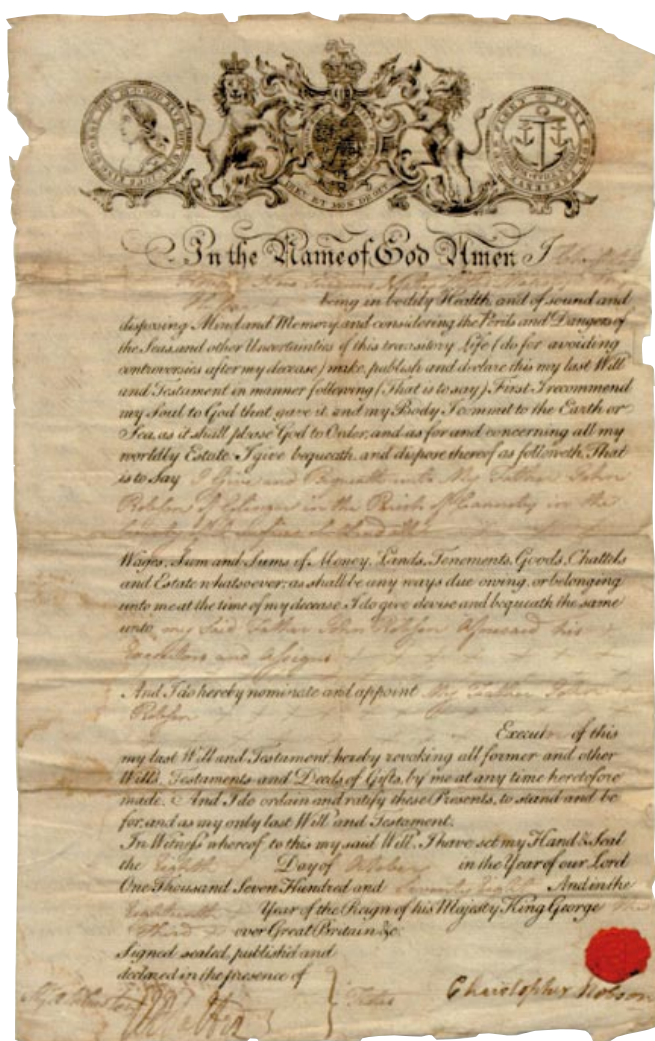 DIEU ET MON DROIT
In the Name of God Amen I
being in bodily Health, and of sound and
disposing Mind and Memory, and considering the Perils and Dangers of
the Seas, and other Uncertainties of this transitory Life (do for avoiding
controversies after my decease) make, publish and declare this my last Will
and Testament in manner following (That is to say) First I recommend
my Soul to God that gave it, and my Body I commit to the Earth or
Sea, as it shall please God to Order; and as for and concerning all my
worldly Estate. I give bequeath, and dispose thereof as followeth, That
is to Say I Give and Bequeath unto My Father John
Robson of in the Parish of in the
Wages, Sum and Sums of Money, Lands, Tenements, Goods, Chattels
and Estate whatsoever; as shall be any ways due owing, or belonging
unto me at the time of my decease I do give devise and bequeath the same
unto my Said Father John Robson his
Executors and Assigns
And I do hereby nominate and appoint My Father John
Robson
Execut of this
my last Will and Testament, hereby revoking all former and other
Wills, Testaments and Deeds of Gifts, by me at any time heretofore
made. And I do ordain and ratify these Presents, to stand and be
for, and as my only last Will and Testament.
In Witness whereof, to this my said Will, I have set my Hand & Seal
the Eighth Day of October in the Year of our Lord
One Thousand Seven Hundred and Seventy Eight And in the
Year of the Reign of his Majesty King George the
Third over Great Britain &c.
Signed sealed, publish'd and
declared in the presence of
Christopher Robson